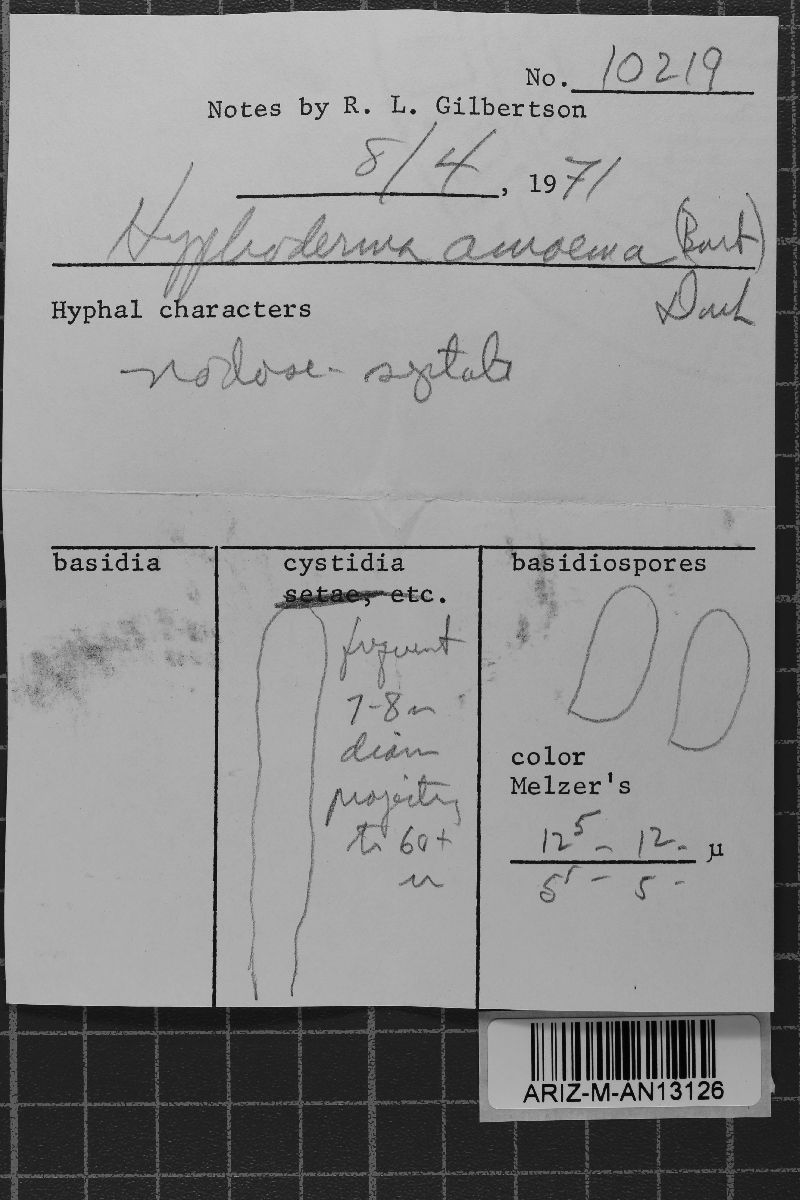 No. 10219
Notes by R. L. Gilbertson
8/4, 1971
Hyphoderma amoena (Burt)
Donk
Hyphal characters
nodose-septate
basidia
cystidia
setae, etc.
frequent
7-8 u
diam
projecting
to 60+
u
basidiospores
color
Melzer's
12⁵ - 12 - µ
5⁵ - 5 -
ARIZ-M-AN13126